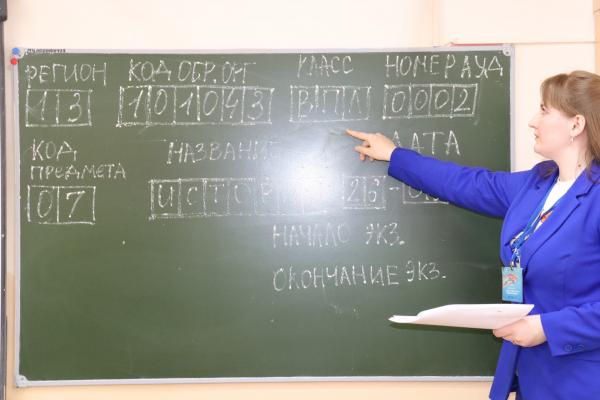 РЕГИОН КОД ОБР. ОРГ КЛАСС НОМЕР АУД
13 101043 ВПЛ 0002
КОД ПРЕДМЕТА НАЗВАНИЕ ДАТА
07 ИСТОРИЯ 26-
НАЧАЛО ЭКЗ.
ОКОНЧАНИЕ ЭКЗ.